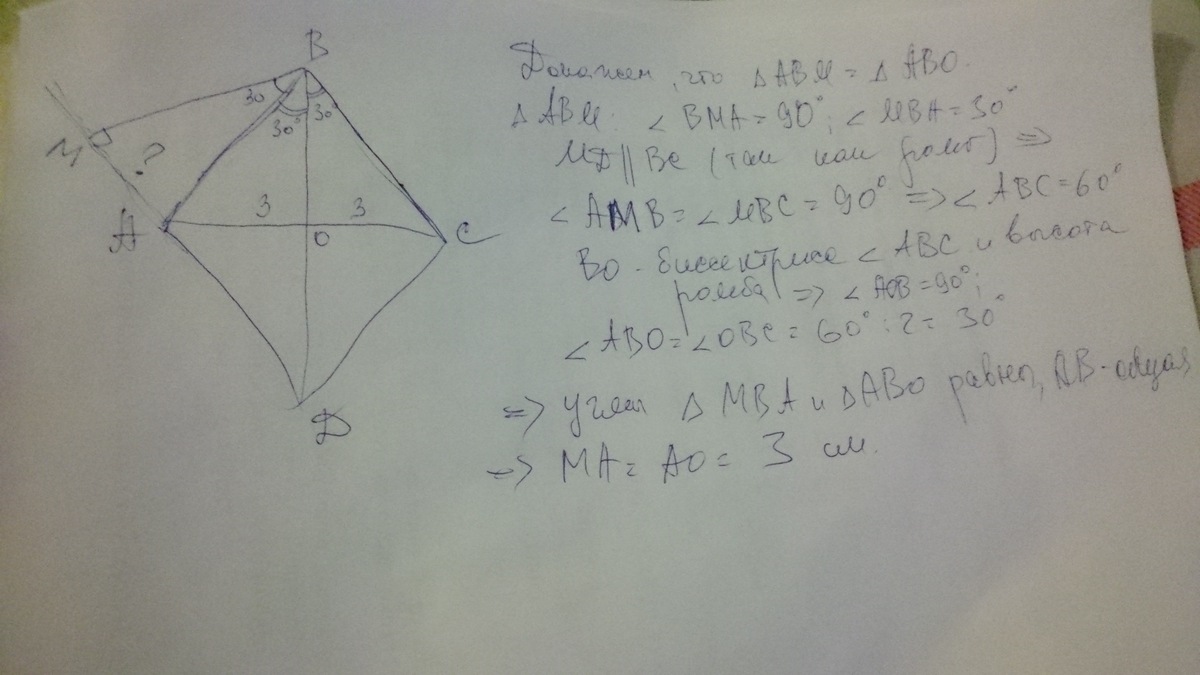 B
30
30°
30°
M
?
3
3
A
O
C
D
Докажем, что △ABM = △ABO.
△ABM: ∠BMA = 90°; ∠MBA = 30°
MD || BC (так как ромб) ⇒
∠AMB = ∠MBC = 90° ⇒ ∠ABC = 60°
BO - биссектриса ∠ABC и высота
ромба ⇒ ∠AOB = 90°;
∠ABO = ∠OBC = 60° : 2 = 30°
⇒ углы △MBA и △ABO равны, AB - общая
⇒ MA = AO = 3 см.